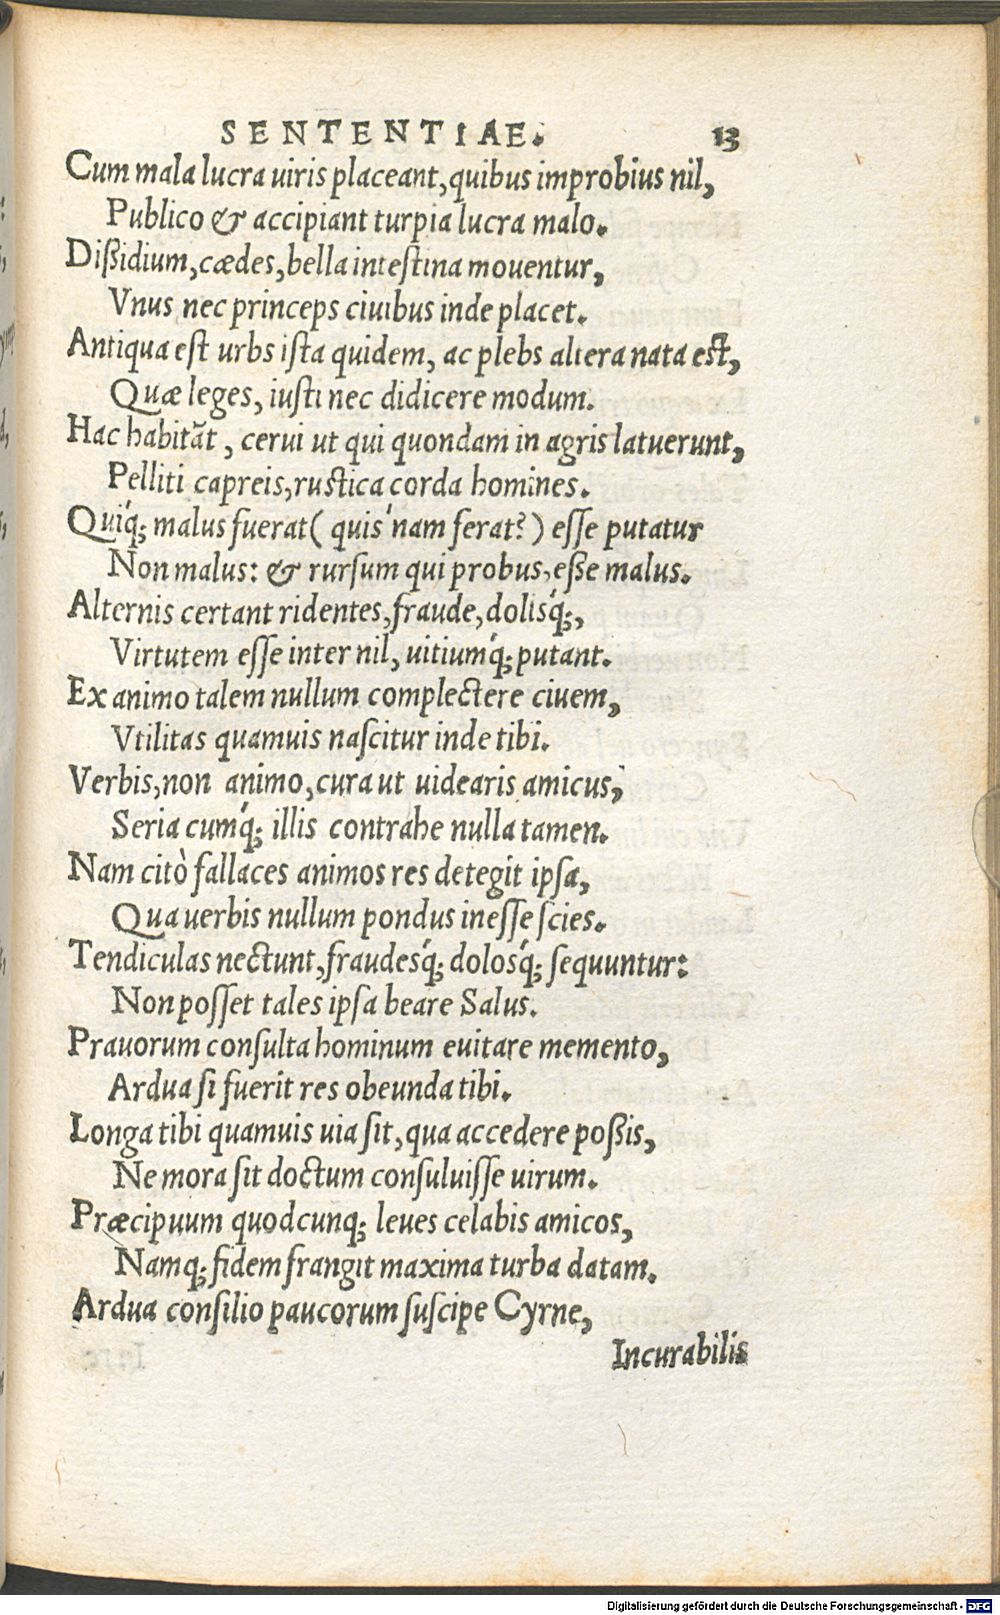 SENTENTIAE. 13
Cum mala lucra uiris placeant, quibus improbius nil,
Publico & accipiant turpia lucra malo.
Dißidium, cædes, bella intestina mouentur,
Vnus nec princeps ciuibus inde placet.
Antiqua est urbs ista quidem, ac plebs altera nata est,
Quæ leges, iusti nec didicere modum.
Hac habitāt, cerui ut qui quondam in agris latuerunt,
Pelliti capreis, rustica corda homines.
Quíq; malus fuerat ( quis'nam ferat? ) esse putatur
Non malus: & rursum qui probus, eße malus.
Alternis certant ridentes, fraude, dolisq́;,
Virtutem esse inter nil, uitiumq́; putant.
Ex animo talem nullum complectere ciuem,
Vtilitas quamuis nascitur inde tibi.
Verbis, non animo, cura ut uidearis amicus,
Seria cumq́; illis contrahe nulla tamen.
Nam citò fallaces animos res detegit ipsa,
Qua uerbis nullum pondus inesse scies.
Tendiculas nectunt, fraudesq́; dolosq́; sequuntur:
Non posset tales ipsa beare Salus.
Prauorum consulta hominum euitare memento,
Ardua si fuerit res obeunda tibi.
Longa tibi quamuis uia sit, qua accedere poßis,
Ne mora sit doctum consuluisse uirum.
Præcipuum quodcunq; leues celabis amicos,
Namq; fidem frangit maxima turba datam.
Ardua consilio paucorum suscipe Cyrne,
Incurabilis
Digitalisierung gefördert durch die Deutsche Forschungsgemeinschaft - DFG